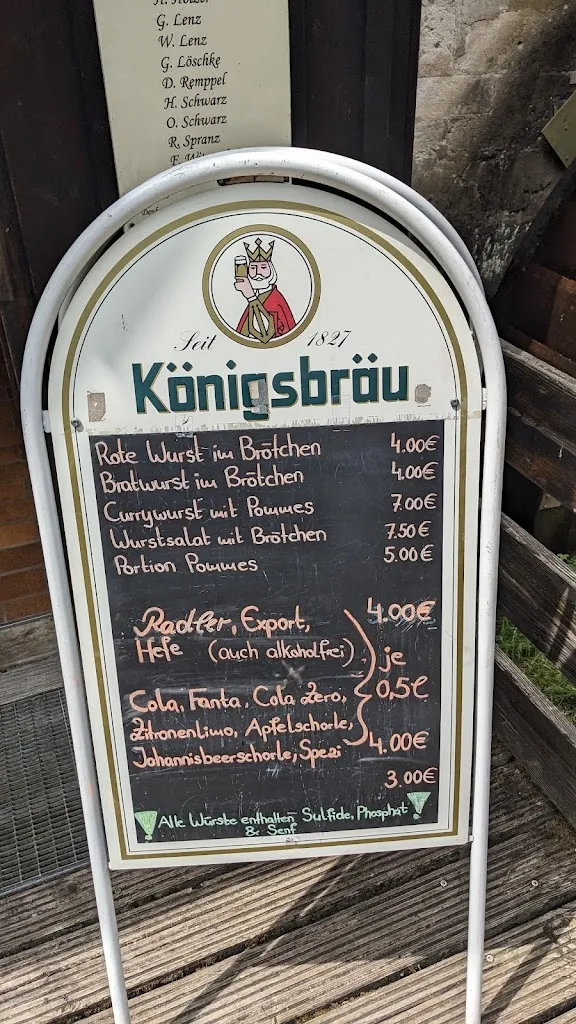 G. Lenz
W. Lenz
G. Löschke
D. Remppel
H. Schwarz
O. Schwarz
R. Spranz
Seit 1827
Königsbräu
Rote Wurst im Brötchen 4.00€
Bratwurst im Brötchen 4.00€
Currywurst mit Pommes 7.00€
Wurstsalat mit Brötchen 7.50€
Portion Pommes 5.00€
Radler, Export, 4.00€
Hefe (auch alkoholfrei)
je
0,5l
Cola, Fanta, Cola Zero,
Zitronenlimo, Apfelschorle,
Johannisbeerschorle, Spezi 4.00€
3.00€
! Alle Würste enthalten Sulfide, Phosphat !
& Senf